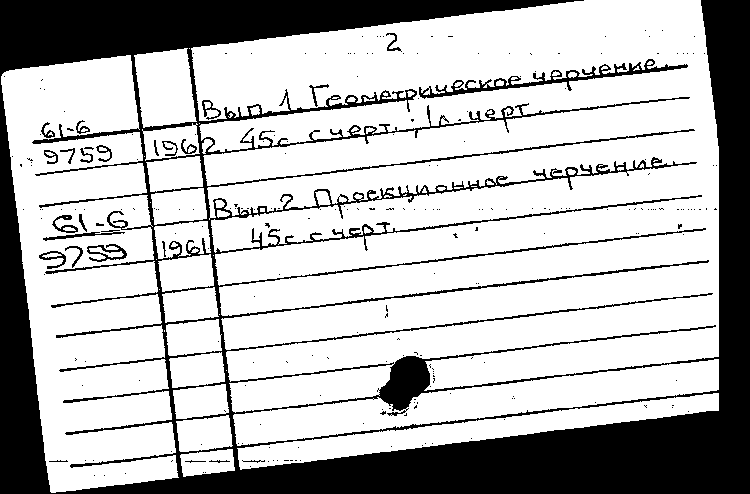 2
61-6 Вып. 1. Геометрическое черчение.
9759 1962. 45с с черт.; 1л. черт.
61-6 Вып. 2. Проекционное черчение.
9759 1961. 45с. с черт.